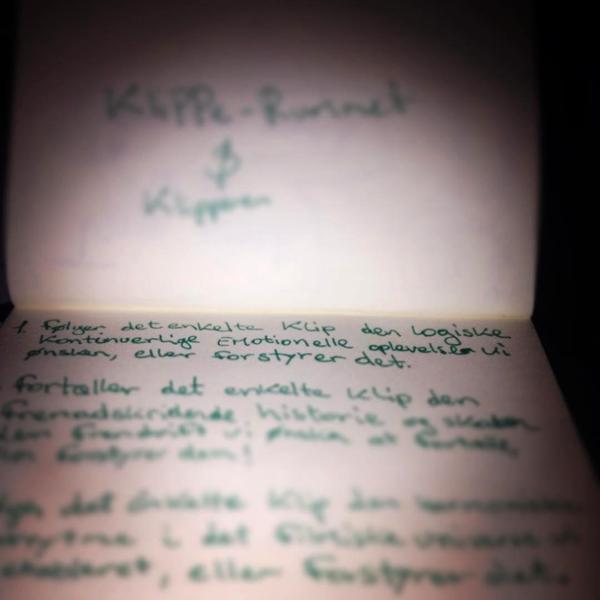 Klippe-Rummet
&
Klipperen
1. Følger det enkelte Klip den logiske
Kontinuerlige Emotionelle oplevelse vi
ønsker, eller forstyrer det.
fortæller det enkelte Klip den
fremadskridende historie og skaber
den fremdrift vi ønsker at fortælle,
forstyrer den!
det enkelte Klip den
i det filmiske univers vi
etableret, eller forstyrer det.